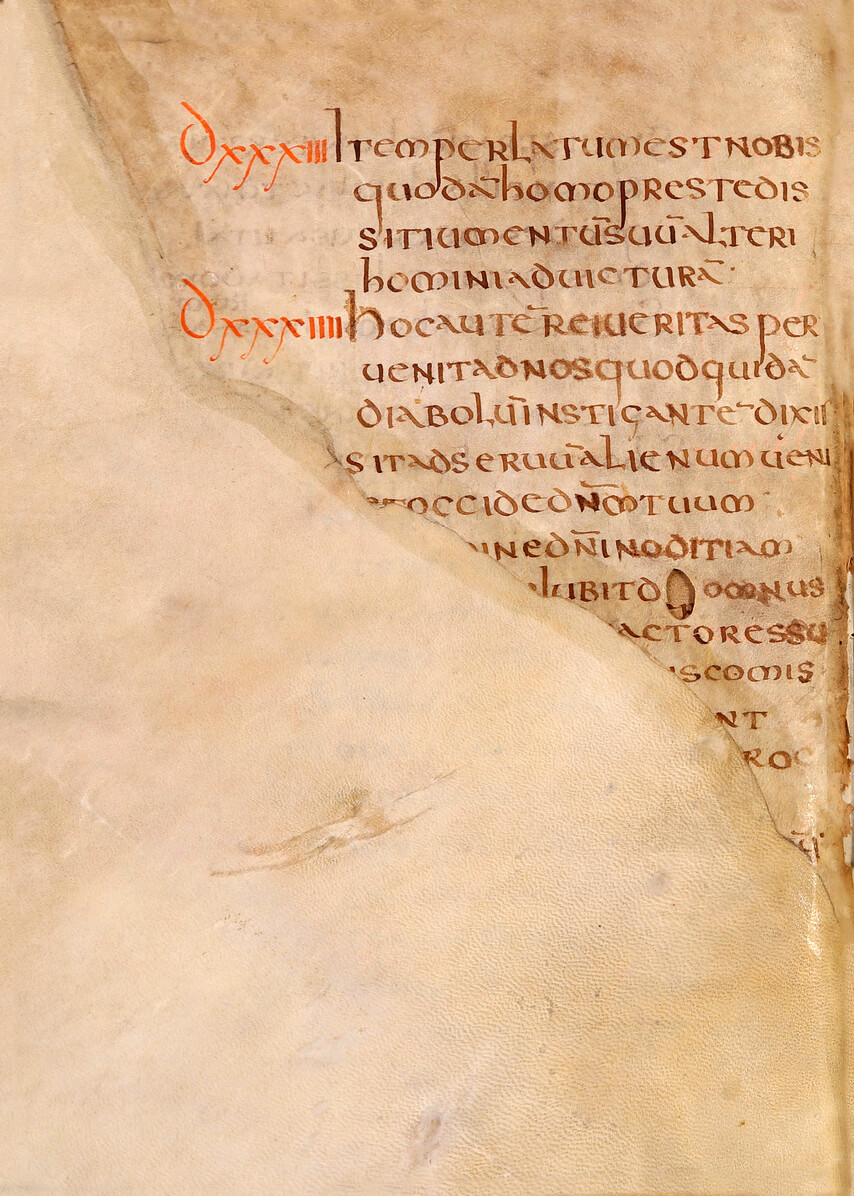 Dxxxiii Item perlatum est nobis
quodā homo prestedis
sitiumentūsuūalteri
hominiaduicturā·
Dxxxiiii hocautēreiueritas per
uenitadnosquodquidā
diaboluīnstigante dixis
sitadseruuālienumueni
occidednm̄tuum
inednīinoditiam
lubitd omnus
actoressu
iscomis
nt
roc